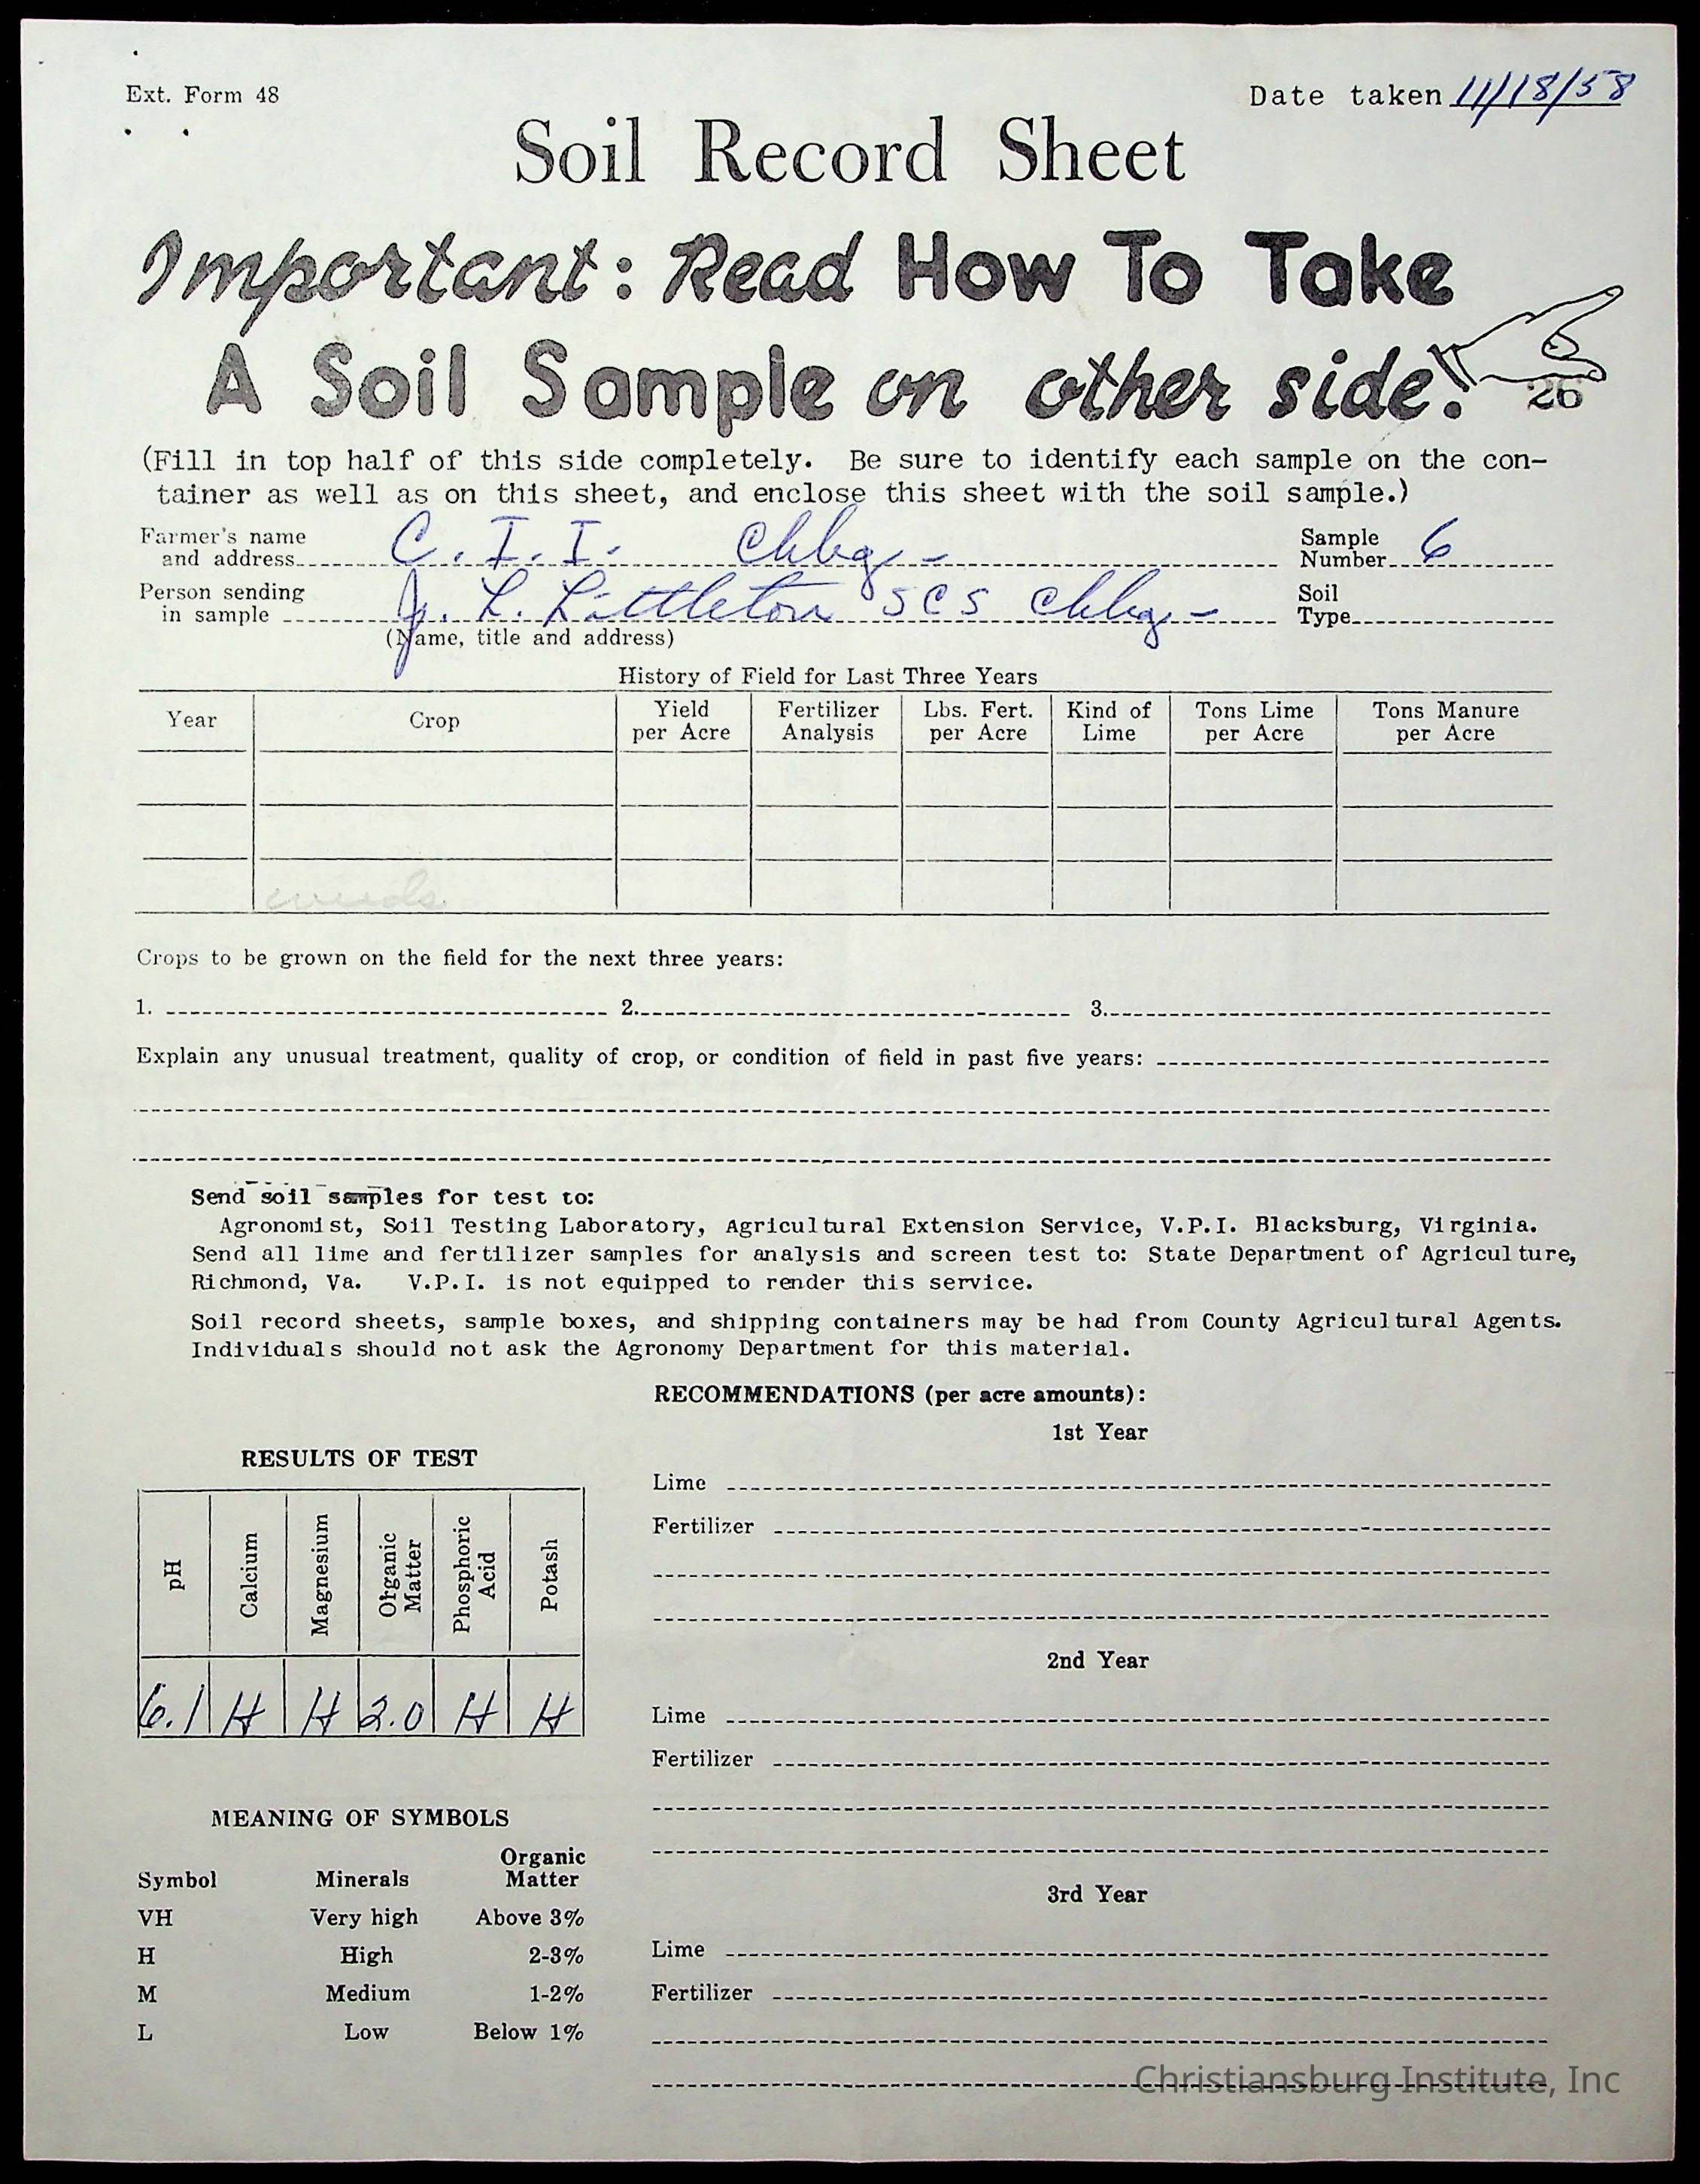 Ext. Form 48
Date taken 11/18/58
Soil Record Sheet
Important: Read How To Take
A Soil Sample on other side.
26
(Fill in top half of this side completely. Be sure to identify each sample on the con-
tainer as well as on this sheet, and enclose this sheet with the soil sample.)
Farmer's name
and address C. I. I. Chbg -
Sample
Number 6
Person sending
in sample J. L. Littleton SCS Chbg -
Soil
Type
(Name, title and address)
History of Field for Last Three Years
Year Crop Yield per Acre Fertilizer Analysis Lbs. Fert. per Acre Kind of Lime Tons Lime per Acre Tons Manure per Acre
weeds
Crops to be grown on the field for the next three years:
1. 2. 3.
Explain any unusual treatment, quality of crop, or condition of field in past five years:
Send soil samples for test to:
Agronomist, Soil Testing Laboratory, Agricultural Extension Service, V.P.I. Blacksburg, Virginia.
Send all lime and fertilizer samples for analysis and screen test to: State Department of Agriculture,
Richmond, Va. V.P.I. is not equipped to render this service.
Soil record sheets, sample boxes, and shipping containers may be had from County Agricultural Agents.
Individuals should not ask the Agronomy Department for this material.
RESULTS OF TEST
pH Calcium Magnesium Organic Matter Phosphoric Acid Potash
6.1 H H 2.0 H H
MEANING OF SYMBOLS
Symbol Minerals Organic Matter
VH Very high Above 3%
H High 2-3%
M Medium 1-2%
L Low Below 1%
RECOMMENDATIONS (per acre amounts):
1st Year
Lime
Fertilizer
2nd Year
Lime
Fertilizer
3rd Year
Lime
Fertilizer
Christiansburg Institute, Inc